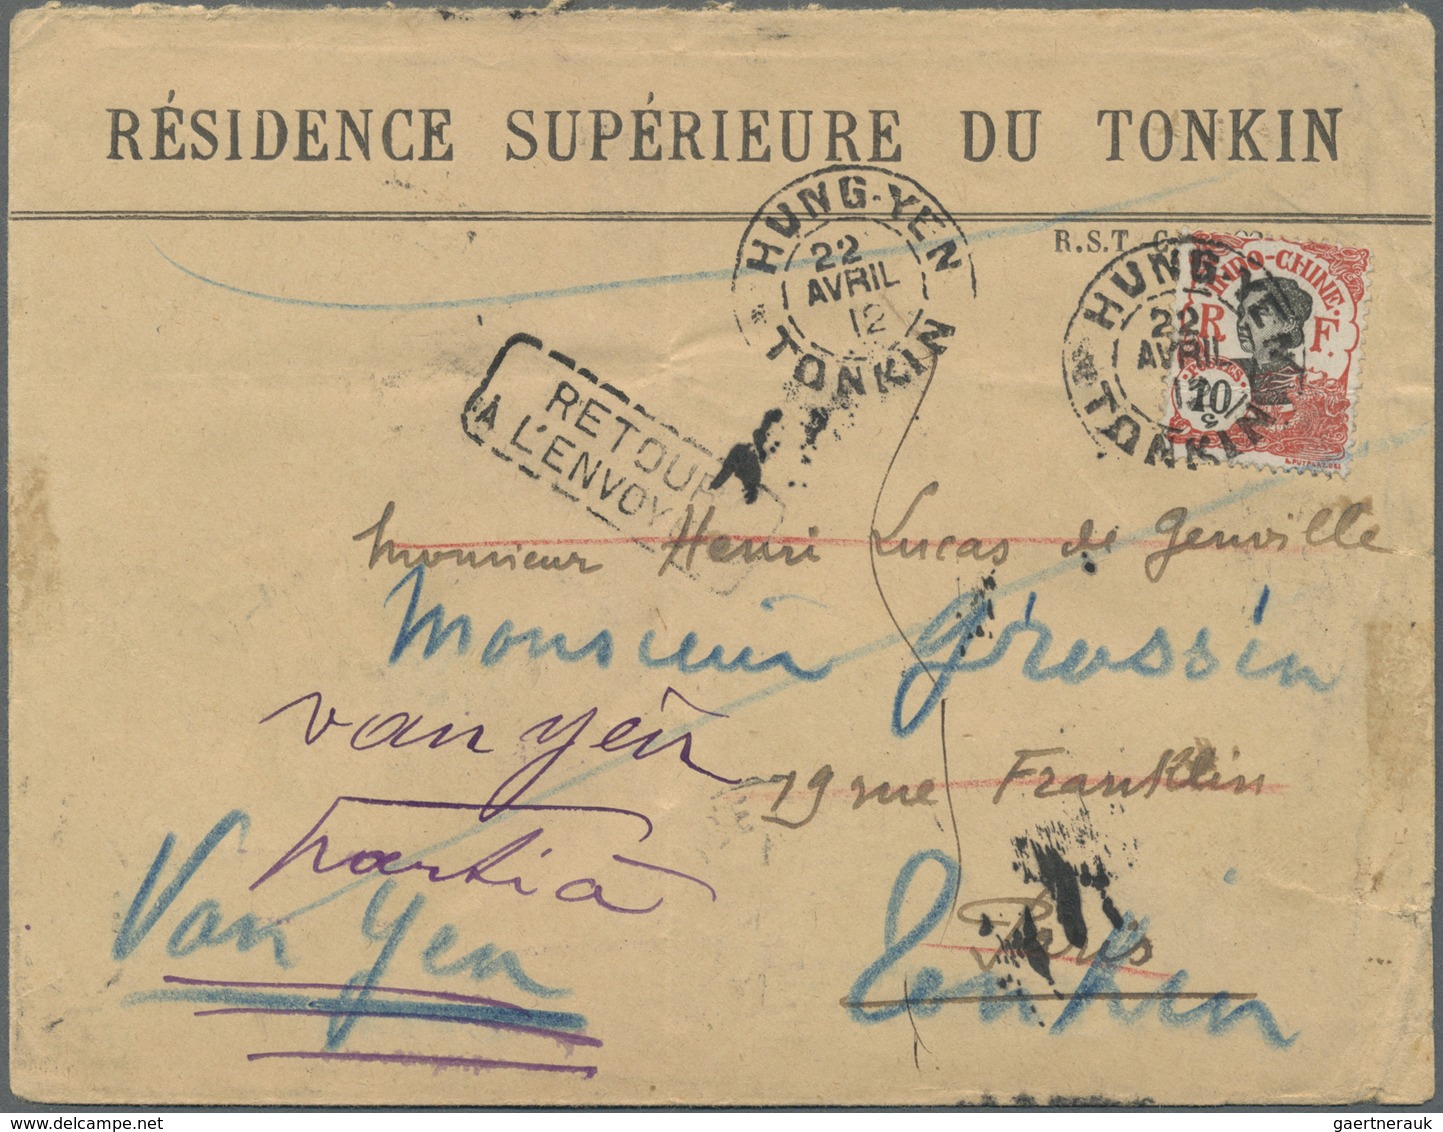 RÉSIDENCE SUPÉRIEURE DU TONKIN
R.S.T.
HUNG-YEN
22
AVRIL
12
TONKIN
HUNG-YEN
22
AVRIL
12
TONKIN
INDO-CHINE.
R F
POSTES
10
c
RETOUR
À L'ENVOY
Monsieur Henri Lucas de Genville
Monsieur Grossin
van yên
79 rue Franklin
parti à
Van Yen
Paris
Tonkin
gaertnerauk@delcampe.net